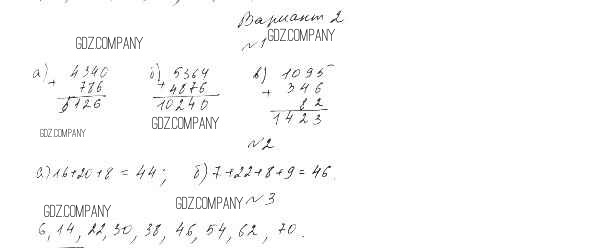 Вариант 2
GDZ.COMPANY
№1
GDZ.COMPANY
а) 4340 б) 5364 в) 1095
+ 786 + 4876 + 346
5126 10240 82
1423
GDZ.COMPANY
GDZ.COMPANY
№2
а) 16+20+8 = 44; б) 7+22+8+9 = 46.
GDZ.COMPANY №3
GDZ.COMPANY
6, 14, 22, 30, 38, 46, 54, 62, 70.